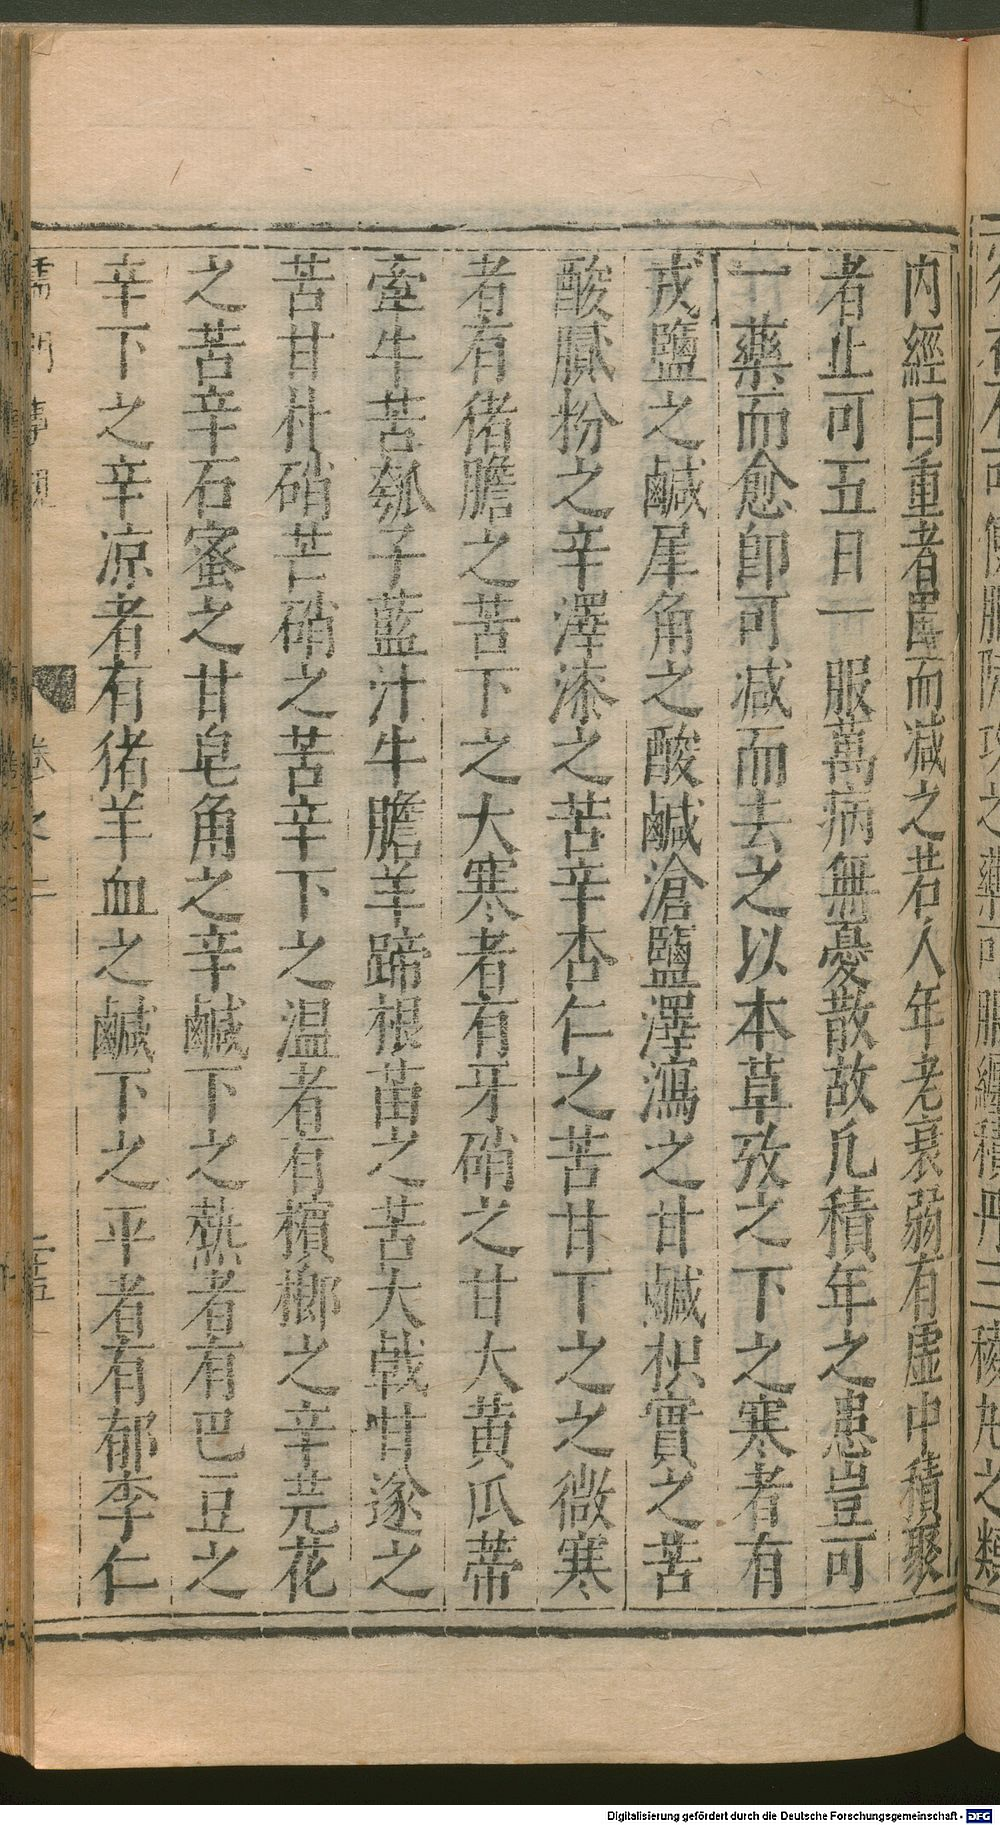 内經曰重者因而减之若人年老衰弱有虛中積聚
者止可五日一服萬病無憂散故凡積年之患豈可
一藥而愈卽可减而去之以本草攷之下之寒者有
戎鹽之鹹犀角之酸鹹滄鹽澤瀉之甘鹹枳實之苦
酸膩粉之辛澤漆之苦辛杏仁之苦甘下之之微寒
者有猪膽之苦下之大寒者有牙硝之甘大黄瓜蒂
牽牛苦瓠子藍汁牛膽羊蹄根苗之苦大戟甘遂之
苦甘朴硝芒硝之苦辛下之温者有檳榔之辛芫花
之苦辛石蜜之甘皂角之辛鹹下之熱者有巴豆之
辛下之辛凉者有猪羊血之鹹下之平者有郁李仁
儒門事親 卷之二 二十五
Digitalisierung gefördert durch die Deutsche Forschungsgemeinschaft - DFG